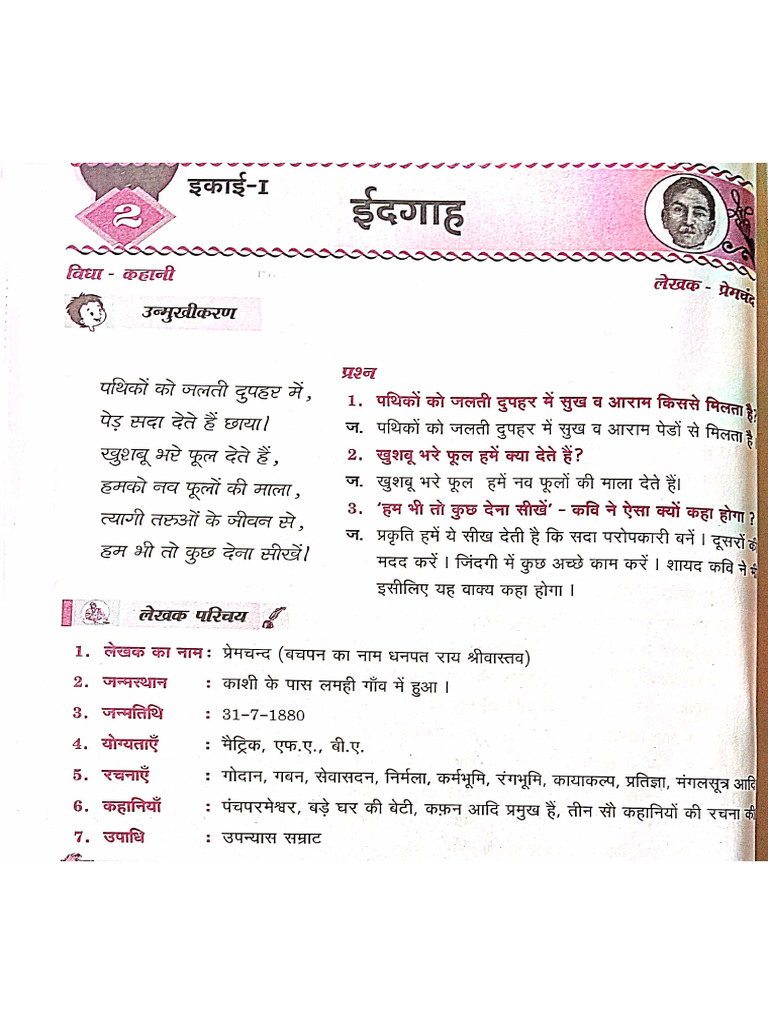 इकाई-I
2
ईदगाह
विधा - कहानी
लेखक - प्रेमचंद
उन्मुखीकरण
पथिकों को जलती दुपहर में,
पेड़ सदा देते हैं छाया।
खुशबू भरे फूल देते हैं,
हमको नव फूलों की माला,
त्यागी तरुओं के जीवन से,
हम भी तो कुछ देना सीखें।
प्रश्न
1. पथिकों को जलती दुपहर में सुख व आराम किससे मिलता है?
ज. पथिकों को जलती दुपहर में सुख व आराम पेडों से मिलता है।
2. खुशबू भरे फूल हमें क्या देते हैं?
ज. खुशबू भरे फूल हमें नव फूलों की माला देते हैं।
3. 'हम भी तो कुछ देना सीखें' - कवि ने ऐसा क्यों कहा होगा ?
ज. प्रकृति हमें ये सीख देती है कि सदा परोपकारी बनें। दूसरों की
मदद करें । जिंदगी में कुछ अच्छे काम करें । शायद कवि ने भी
इसीलिए यह वाक्य कहा होगा ।
लेखक परिचय
1. लेखक का नाम : प्रेमचन्द (बचपन का नाम धनपत राय श्रीवास्तव)
2. जन्मस्थान : काशी के पास लमही गाँव में हुआ ।
3. जन्मतिथि : 31-7-1880
4. योग्यताएँ : मैट्रिक, एफ.ए., बी.ए.
5. रचनाएँ : गोदान, गबन, सेवासदन, निर्मला, कर्मभूमि, रंगभूमि, कायाकल्प, प्रतिज्ञा, मंगलसूत्र आदि
6. कहानियाँ : पंचपरमेश्वर, बड़े घर की बेटी, कफ़न आदि प्रमुख हैं, तीन सौ कहानियों की रचना की
7. उपाधि : उपन्यास सम्राट